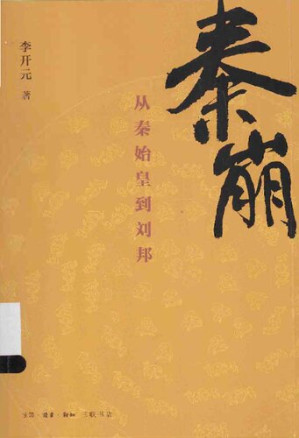 秦崩
李开元 著
从秦始皇到刘邦
生活·讀書·新知 三联书店